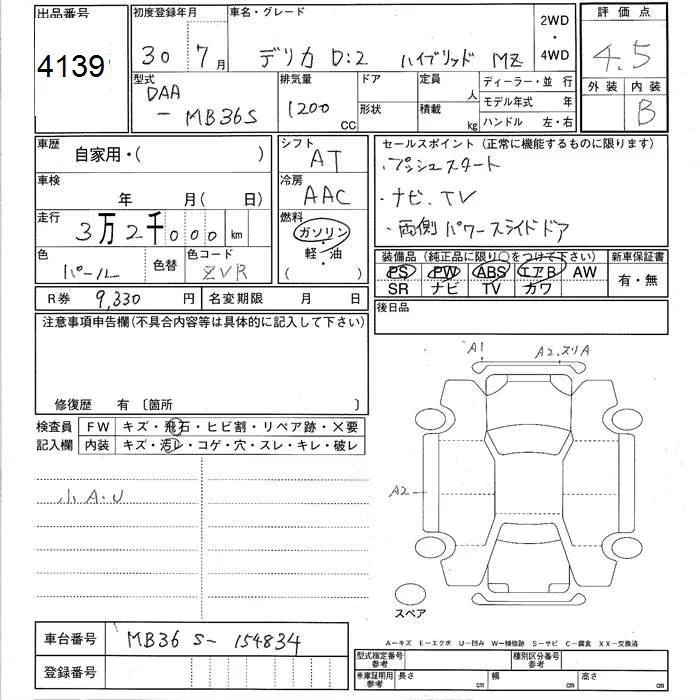 出品番号
4139
初度登録年月
30 7月
車名・グレード
デリカ D:2 ハイブリッド MZ
2WD
・
4WD
評価点
4.5
外装 内装
B
型式
DAA
- MB36S
排気量
1200 CC
ドア
形状
定員
人
積載
kg
ディーラー・並 行
モデル年式 年
ハンドル 左・右
車歴
自家用・( )
シフト
AT
セールスポイント(正常に機能するものに限ります)
・プッシュスタート
・ナビ、TV
・両側パワースライドドア
車検
年 月( 日)
冷房
AAC
走行
3万2千000 km
燃料
ガソリン
・
軽・油
( )
色
パール
色替
色コード
ZVR
装備品(純正品に限り○をつけて下さい)
PS PW ABS エアB AW
SR ナビ TV カワ
新車保証書
有・無
R券 9,330 円
名変期限 月 日
後日品
注意事項申告欄(不具合内容等は具体的に記入して下さい)
修復歴 有 〔箇所 〕
検査員
記入欄
FW キズ・飛石・ヒビ割・リペア跡・×要
内装 キズ・汚レ・コゲ・穴・スレ・キレ・破レ
小A.U
A1
A2.スリA
A2
スペア
A-キズ E-エクボ U-凹み W-補修跡 S-サビ C-腐食 XX-交換済
車台番号 MB36 S- 154834
登録番号
型式指定番号
参考
種別区分番号
参考
車庫証明用
参考
長さ cm
幅 cm
高さ cm